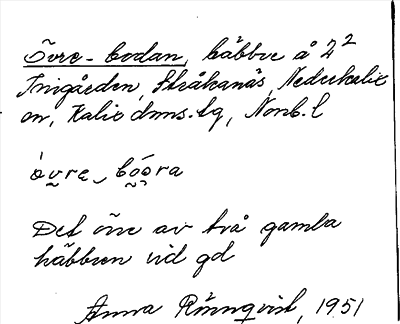 Övre-bodan, häbbre å 2²
Inigården, Stråkanäs, Nederkalix
sn, Kalix dms.tg, Nonb.l
òvre, bo̯o̯ra
Det övre av två gamla
häbbren vid gd
Anna Rönnqvist, 1951